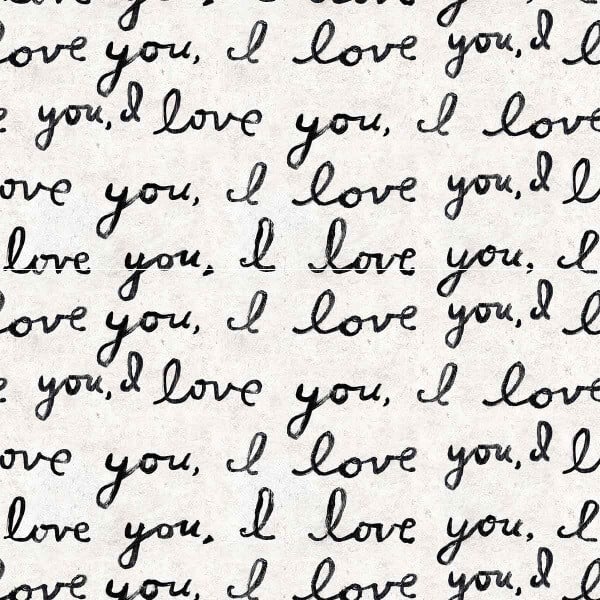 love you, I love you, I
love you, I love you, I l
you, I love you, I love
ove you, I love you, I l
love you, I love you, I
love you, I love you, I l
you, I love you, I love
ove you, I love you, I l
love you, I love you, I
love you, I love you, I l